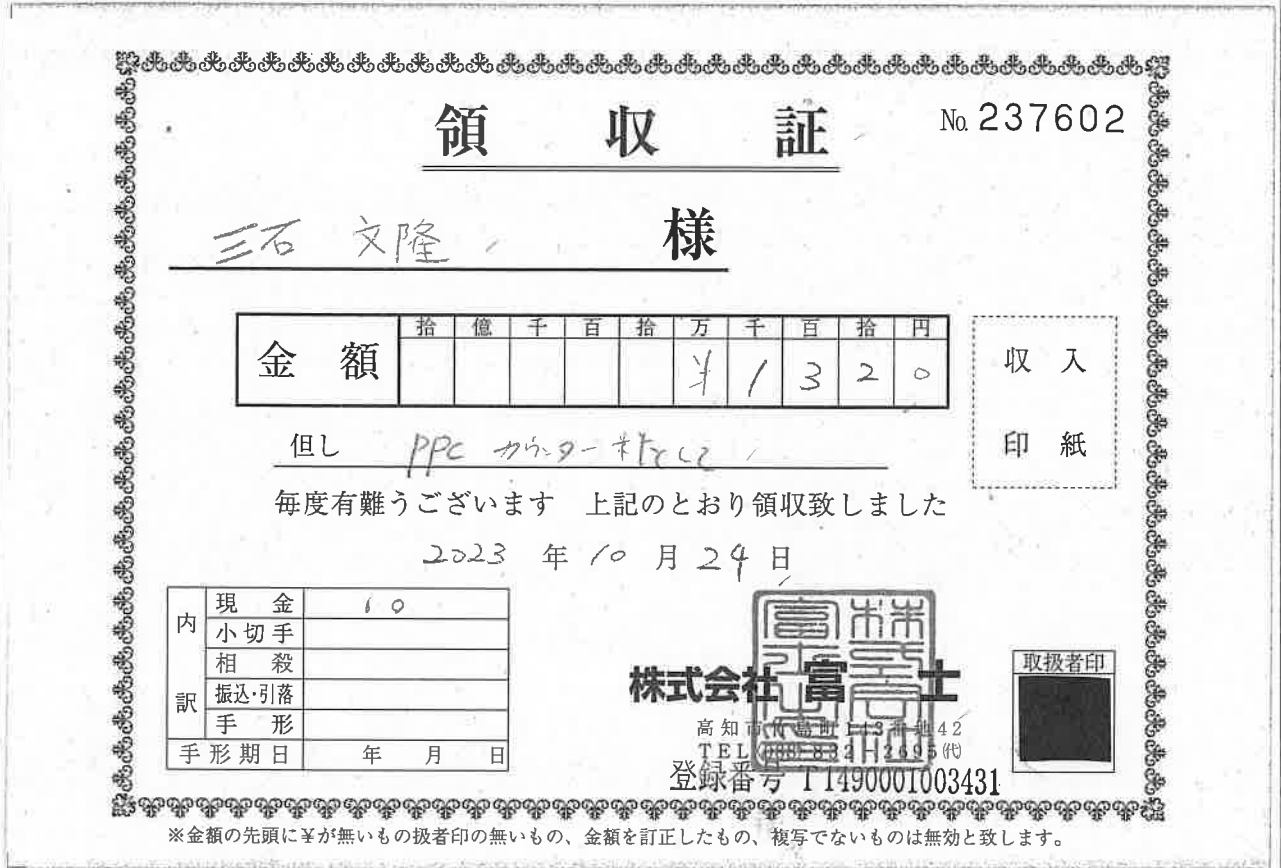 領収証
No. 237602
三石 文隆 様
拾 億 千 百 拾 万 千 百 拾 円
金額 ¥ 1 3 2 0
収入
印紙
但し PPC カウンター料として
毎度有難うございます 上記のとおり領収致しました
2023 年 10 月 24 日
内訳
現金 10
小切手
相殺
振込・引落
手形
手形期日 年 月 日
株式会社 富士
高知市竹島町113番地42
TEL(088)832-2695(代)
登録番号 T1490001003431
取扱者印
※金額の先頭に¥が無いもの扱者印の無いもの、金額を訂正したもの、複写でないものは無効と致します。